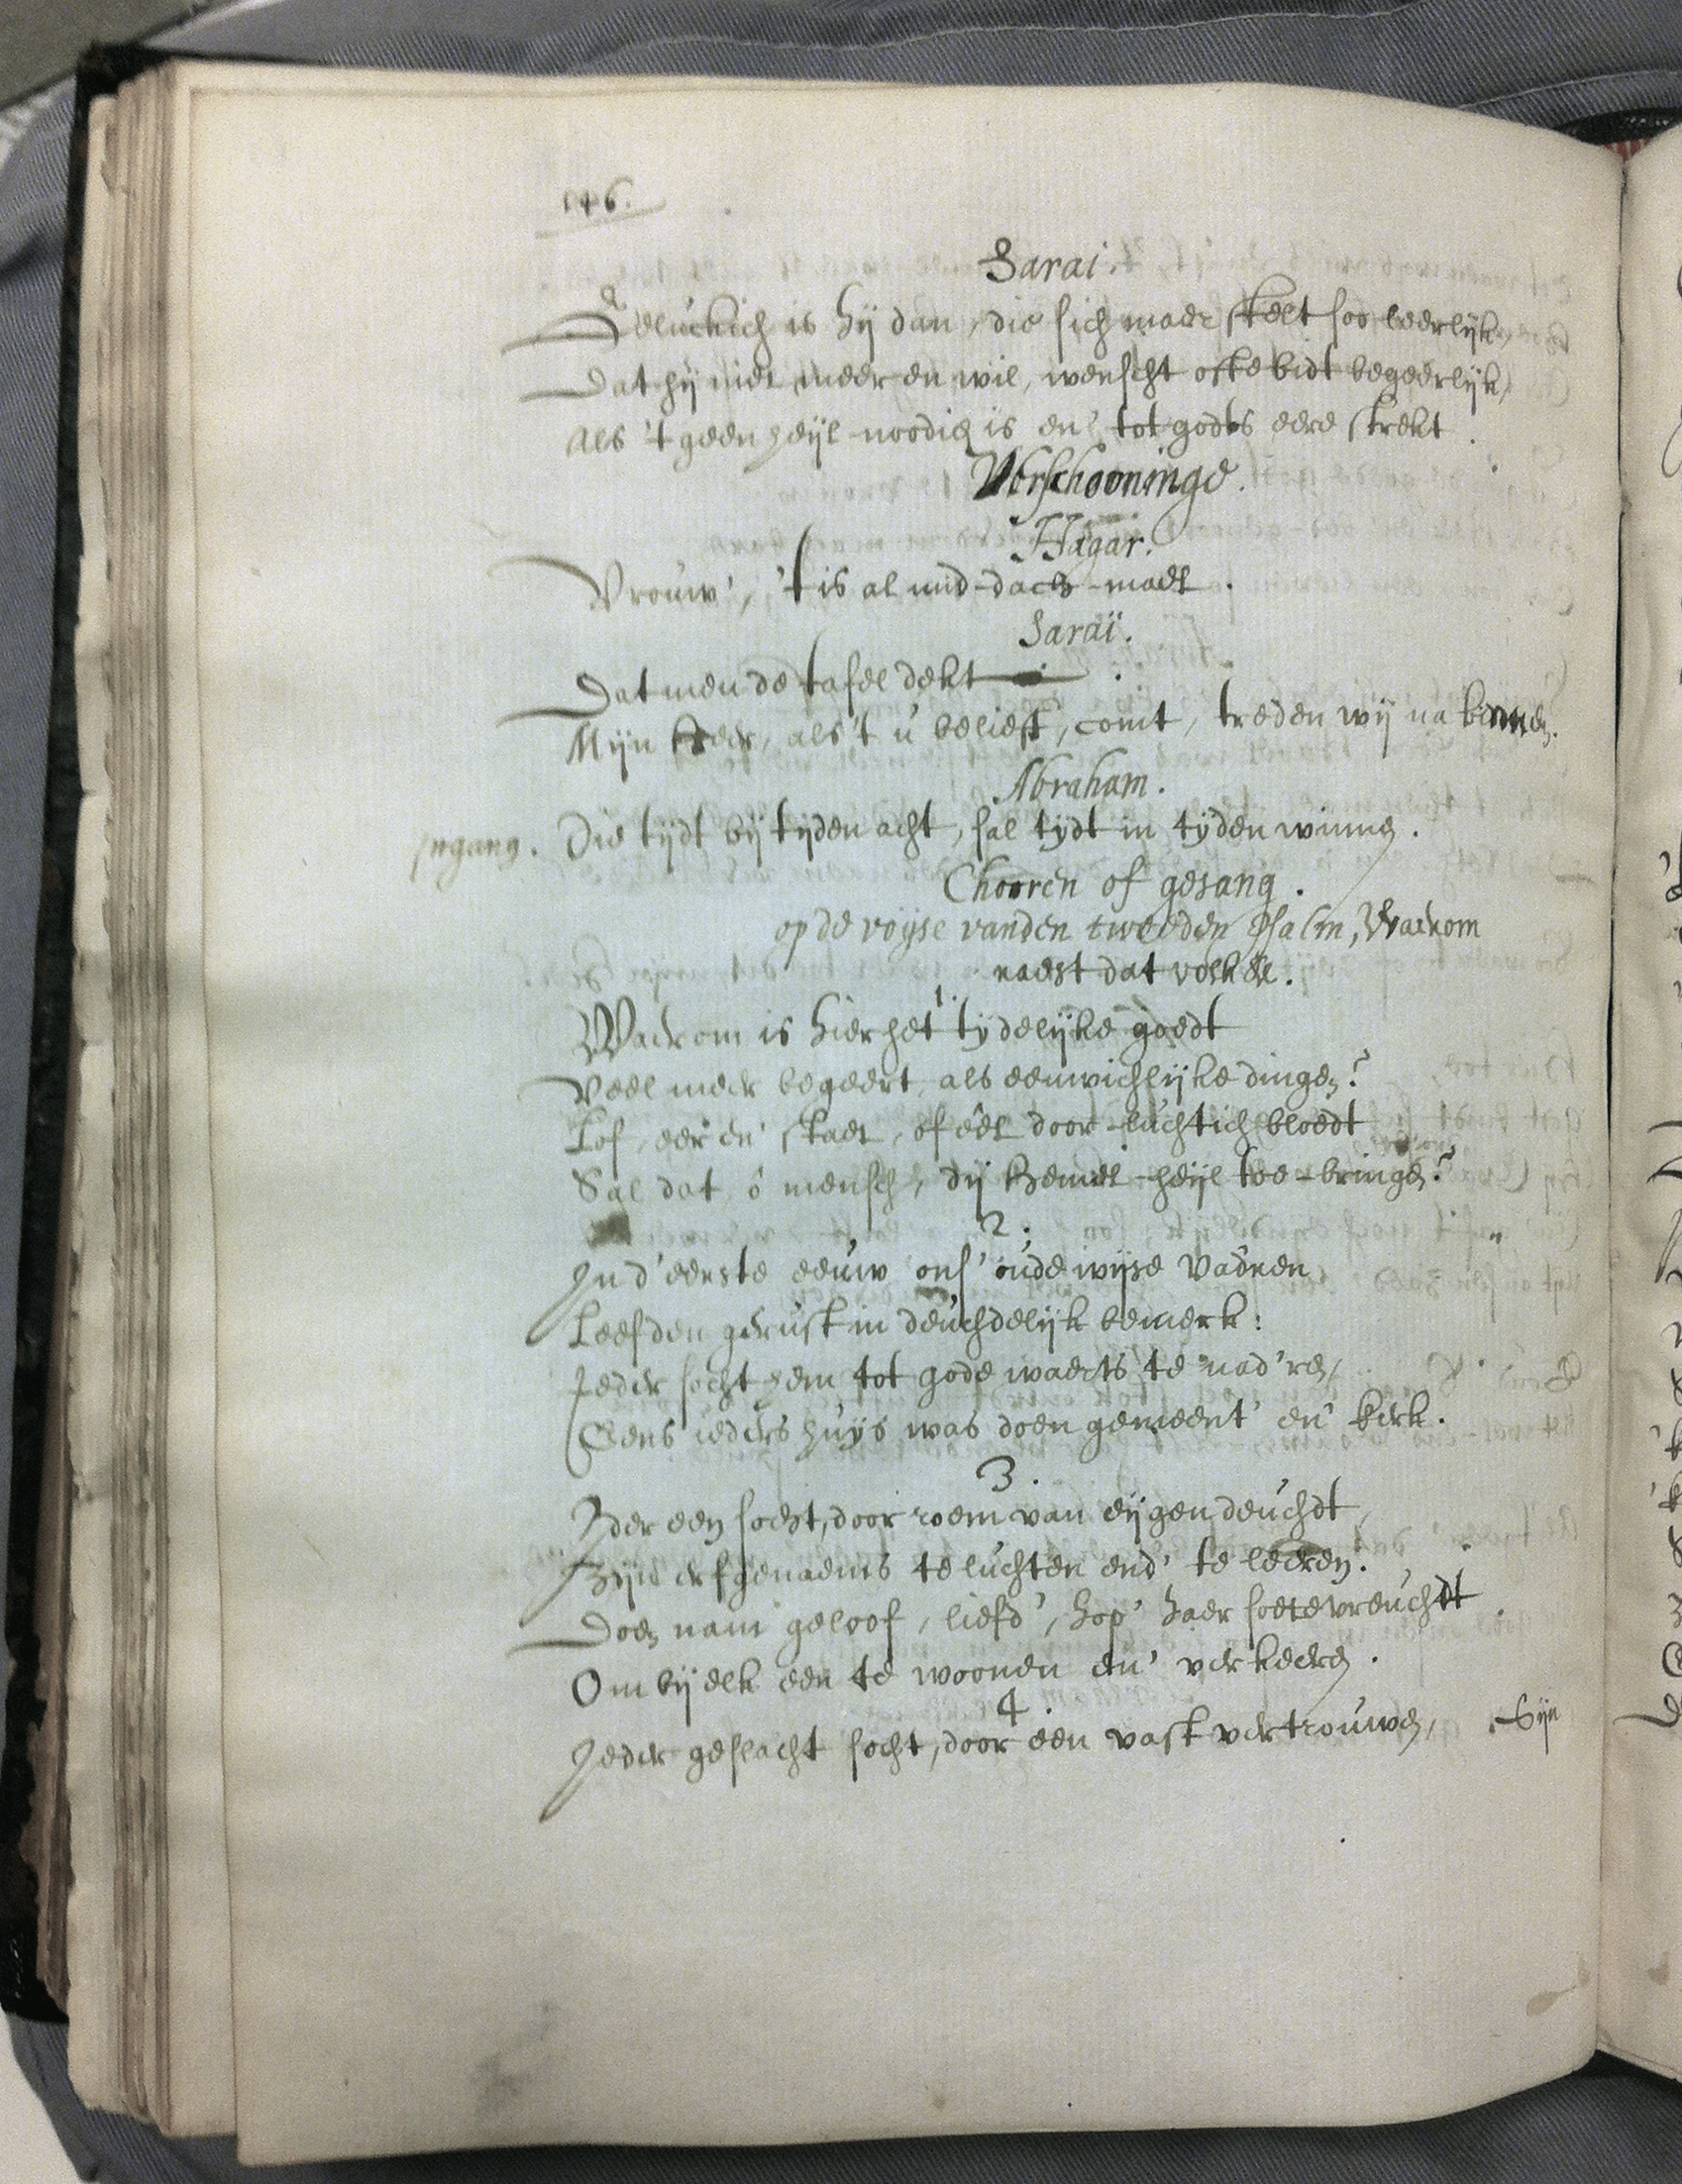 146.
Sarai.
Geluckich is hij dan, die sich maer stelt soo leerlijk,
Dat hij niet meer en wil, wenscht ofte bidt begeerlijk,
Als 't geen heijl-noodich is en' tot godts eere strekt.
Verschooninge.
Hagar.
Vrouw', 't is al mid-dach-mael.
Saraï.
Dat men de tafel dekt
Mijn Heer, als 't u beliest, comt, treden wij na binnen.
Abraham.
Ingang. Die tijdt bij tijden acht, sal tijdt in tijden winnen.
Chooren of gesang.
op de voijse vanden tweeden Psalm, Waerom
raest dat volk &c.
1.
Waerom is hier het tijdelijke goedt
Veel meer begeert, als eeuwichlijke dingen?
Lof, eer en' staet, of êêl door-luchtich bloedt
Sal dat ô mensch, dij Hemel-heijl toe-bringen?
2.
In d'eerste eeuw ons' oude wijse Vad'ren
Leefden gerust in deuchdelijk bemerk:
Ieder socht hem tot gode waerts te nad'ren,
Eens ieders huijs was doen gemeent' en' kerk.
3.
Ider een socht, door roem van eijgen deuchdt,
Zijn erfgenaems te luchten end' te leeren.
Doen nam geloof, liefd', hop' haer soete vreuchdt
Om bij elk een te woonen en' verkeeren.
4.
Ieder geslacht socht, door een vast vertrouwen,
Sijn